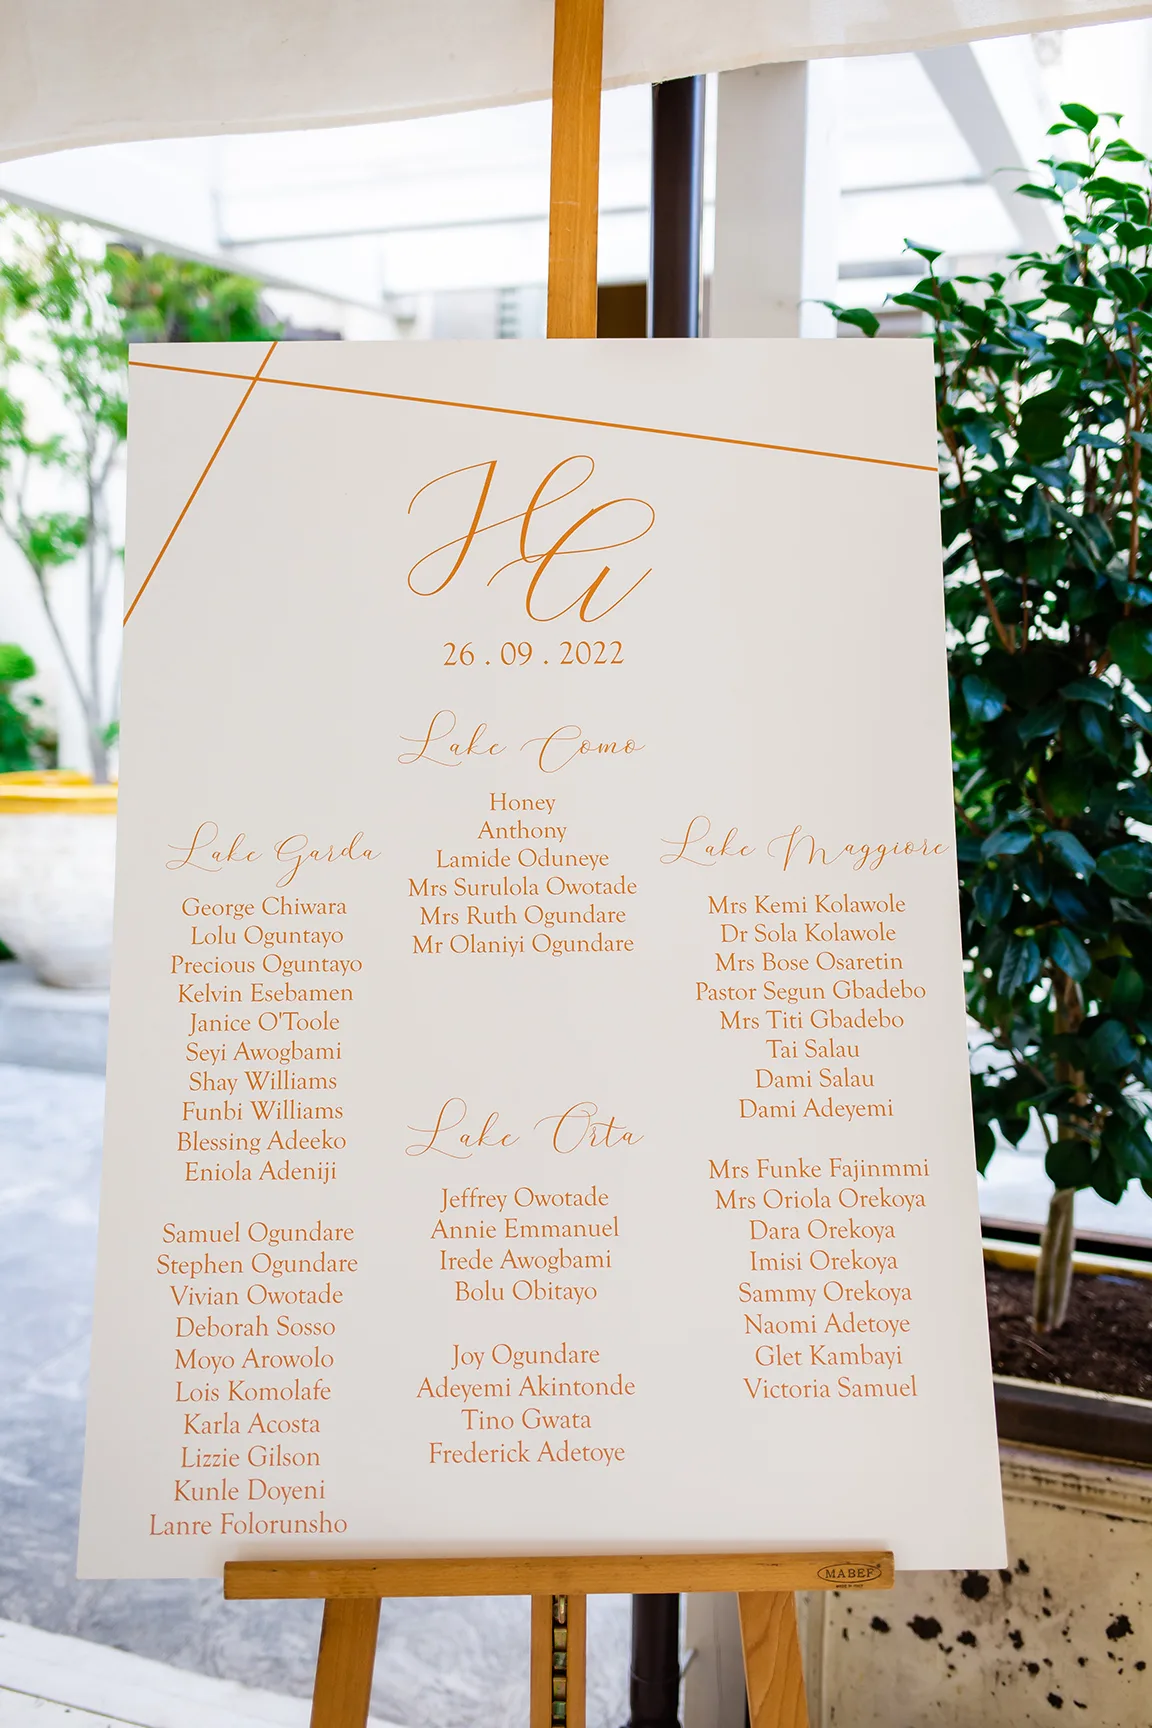 HA
26 . 09 . 2022
Lake Como
Honey
Anthony
Lamide Oduneye
Mrs Surulola Owotade
Mrs Ruth Ogundare
Mr Olaniyi Ogundare
Lake Garda
George Chiwara
Lolu Oguntayo
Precious Oguntayo
Kelvin Esebamen
Janice O'Toole
Seyi Awogbami
Shay Williams
Funbi Williams
Blessing Adeeko
Eniola Adeniji
Samuel Ogundare
Stephen Ogundare
Vivian Owotade
Deborah Sosso
Moyo Arowolo
Lois Komolafe
Karla Acosta
Lizzie Gilson
Kunle Doyeni
Lanre Folorunsho
Lake Orta
Jeffrey Owotade
Annie Emmanuel
Irede Awogbami
Bolu Obitayo
Joy Ogundare
Adeyemi Akintonde
Tino Gwata
Frederick Adetoye
Lake Maggiore
Mrs Kemi Kolawole
Dr Sola Kolawole
Mrs Bose Osaretin
Pastor Segun Gbadebo
Mrs Titi Gbadebo
Tai Salau
Dami Salau
Dami Adeyemi
Mrs Funke Fajinmmi
Mrs Oriola Orekoya
Dara Orekoya
Imisi Orekoya
Sammy Orekoya
Naomi Adetoye
Glet Kambayi
Victoria Samuel
MABEF
MADE IN ITALY